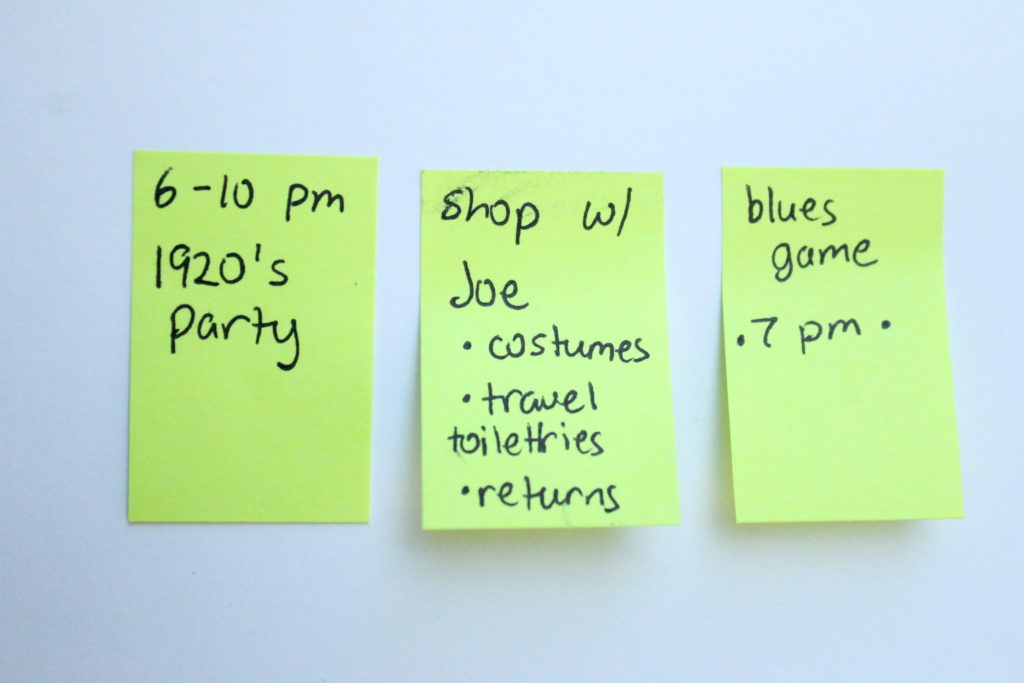 6-10 pm
1920's
party
shop w/
Joe
• costumes
• travel
toilettries
• returns
blues
game
• 7 pm •